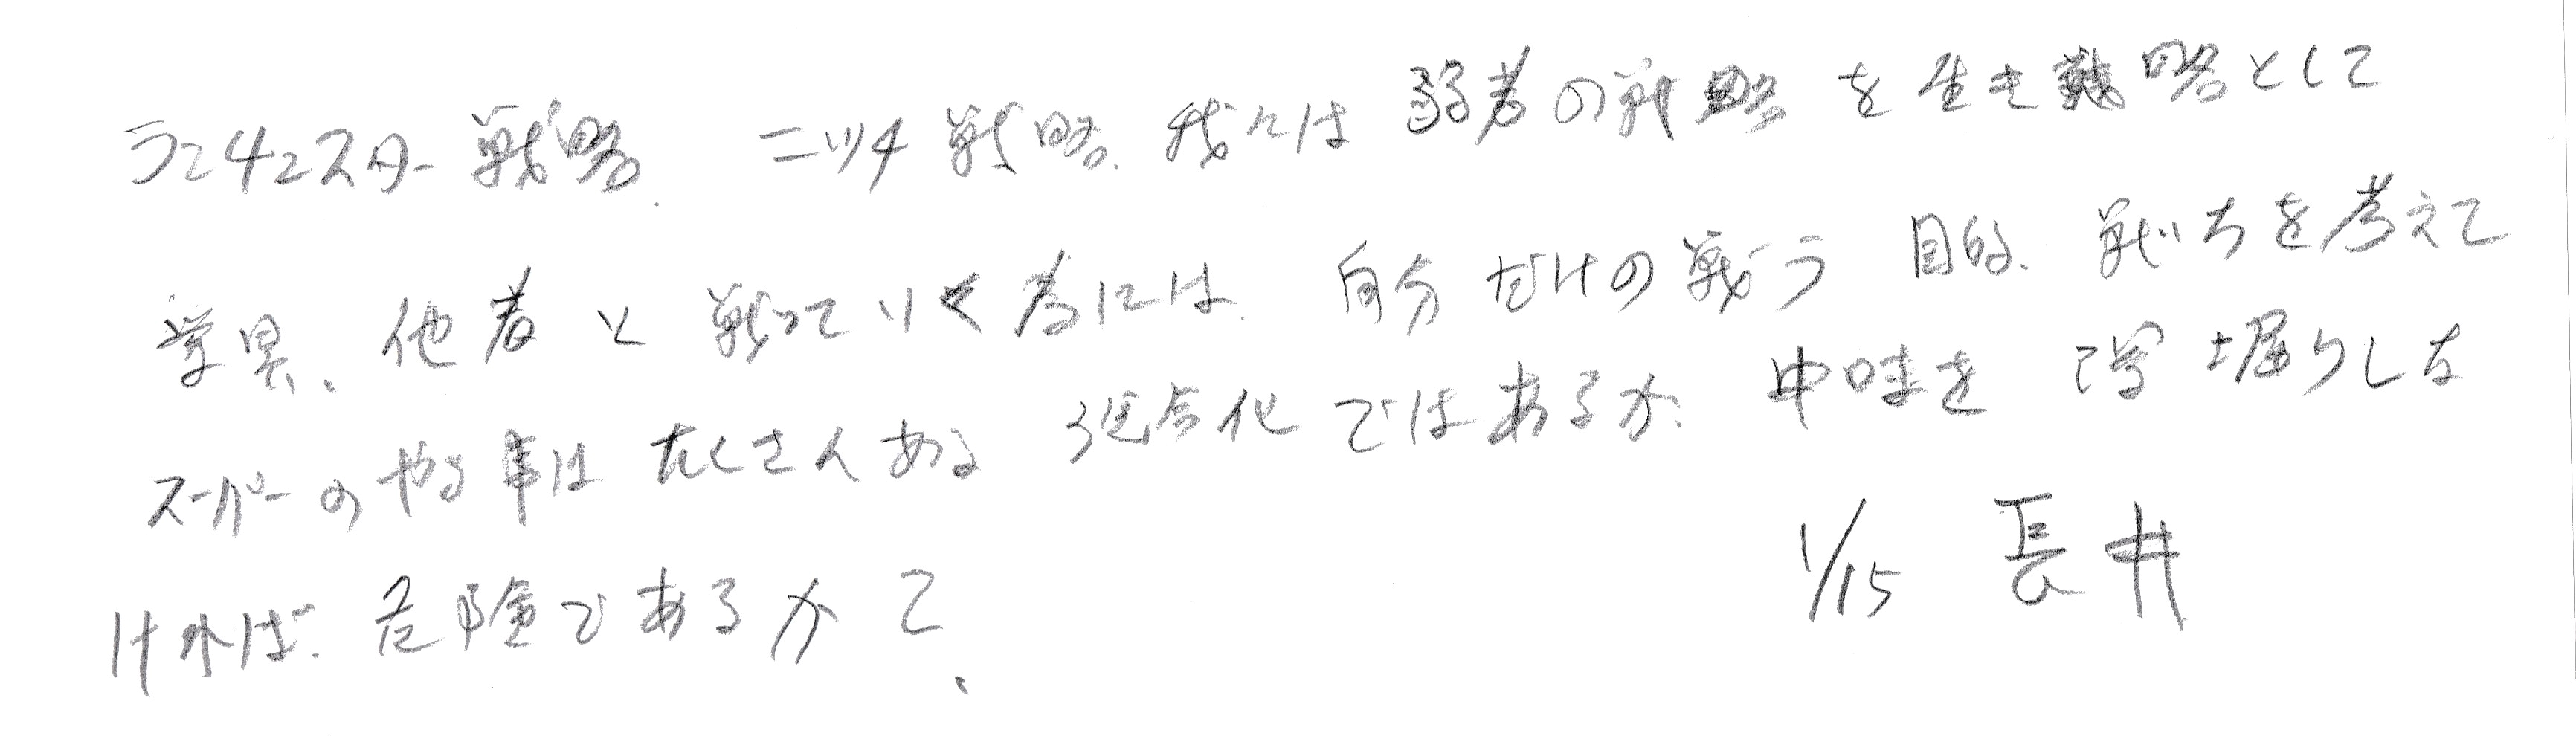 ランチェスター戦略. ニッチ戦略. 我々は 弱者の戦略 を 生き戦略として
学異、他者と戦っていく為には 自分だけの戦う 目的. 戦い方を考えて
スーパーの やる事は たくさんある ではあるが. 中味を 深堀りしな
ければ. 危険であるかて、
1/15 長井